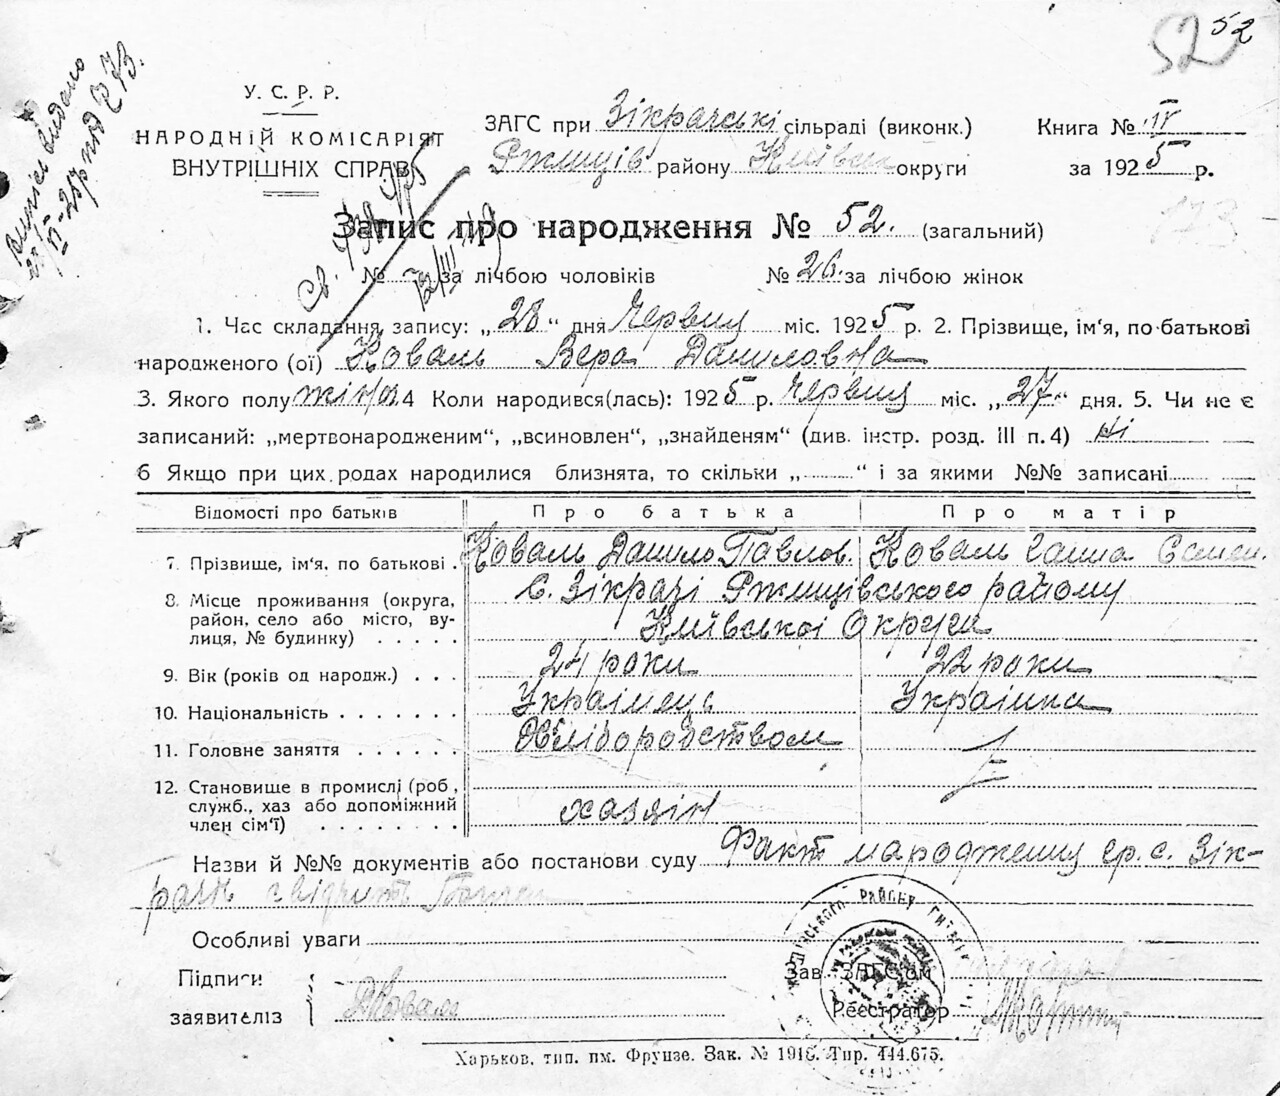 52 52
Випись видано
У. С. Р. Р.
НАРОДНІЙ КОМІСАРІЯТ
ВНУТРІШНІХ СПРАВ
ЗАГС при Зікрачські сільраді (виконк.)
Ржищів району Київськ округи
Книга № IV
за 1925 р.
Запис про народження № 52. (загальний)
№ — за лічбою чоловіків № 26 за лічбою жінок
1. Час складання запису: „28“ дня Червця міс. 1925 р. 2. Прізвище, ім'я, по-батькові
народженого (ої) Коваль Вера Даниловна
3. Якого полу жіноч. 4 Коли народився(лась): 1925 р. Червця міс. „27“ дня. 5. Чи не є
записаний: „мертвонародженим“, „всиновлен“, „знайденям“ (див. інстр. розд. III п. 4) ні
6 Якщо при цих родах народилися близнята, то скільки „ “ і за якими №№ записані
Відомості про батьків Про батька Про матір
7. Прізвище, ім'я, по батькові . Коваль Данило Павлов. Коваль Ганна Семен.
8. Місце проживання (округа, район, село або місто, вулиця, № будинку) . . . . . с. Зікрачі Ржищівського району
Київської Округи
9. Вік (років од народж.) . . . 24 роки 22 роки
10. Національність . . . . . . . Українець Українка
11. Головне заняття . . . . . . Хліборобством
12. Становище в промислі (роб, служб., хаз або допоміжний член сім'ї) . . . . . . . хазяін
Назви й №№ документів або постанови суду Факт народження гр. с. Зік-
рачь свідчить
Особливі уваги
Підписи
заявителів
ДКоваль
Зав. ЗАГС'ом
Реєстратор
Харьков, тип. им. Фрунзе. Зак. № 1916. Тир. 444.675.